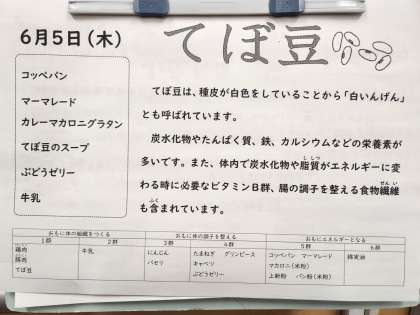 6月5日(木)
てぼ豆
コッペパン
マーマレード
カレーマカロニグラタン
てぼ豆のスープ
ぶどうゼリー
牛乳
てぼ豆は、種皮が白色をしていることから「白いんげん」
とも呼ばれています。
炭水化物やたんぱく質、鉄、カルシウムなどの栄養素が
多いです。また、体内で炭水化物や脂質がエネルギーに変
わる時に必要なビタミンB群、腸の調子を整える食物繊維
も含まれています。
おもに体の組織をつくる おもに体の調子を整える おもにエネルギーとなる
1群 2群 3群 4群 5群 6群
鶏肉 牛乳 にんじん たまねぎ グリンピース コッペパン マーマレード 綿実油
豚肉 パセリ キャベツ マカロニ(米粉)
てぼ豆 ぶどうゼリー 上新粉 パン粉(米粉)